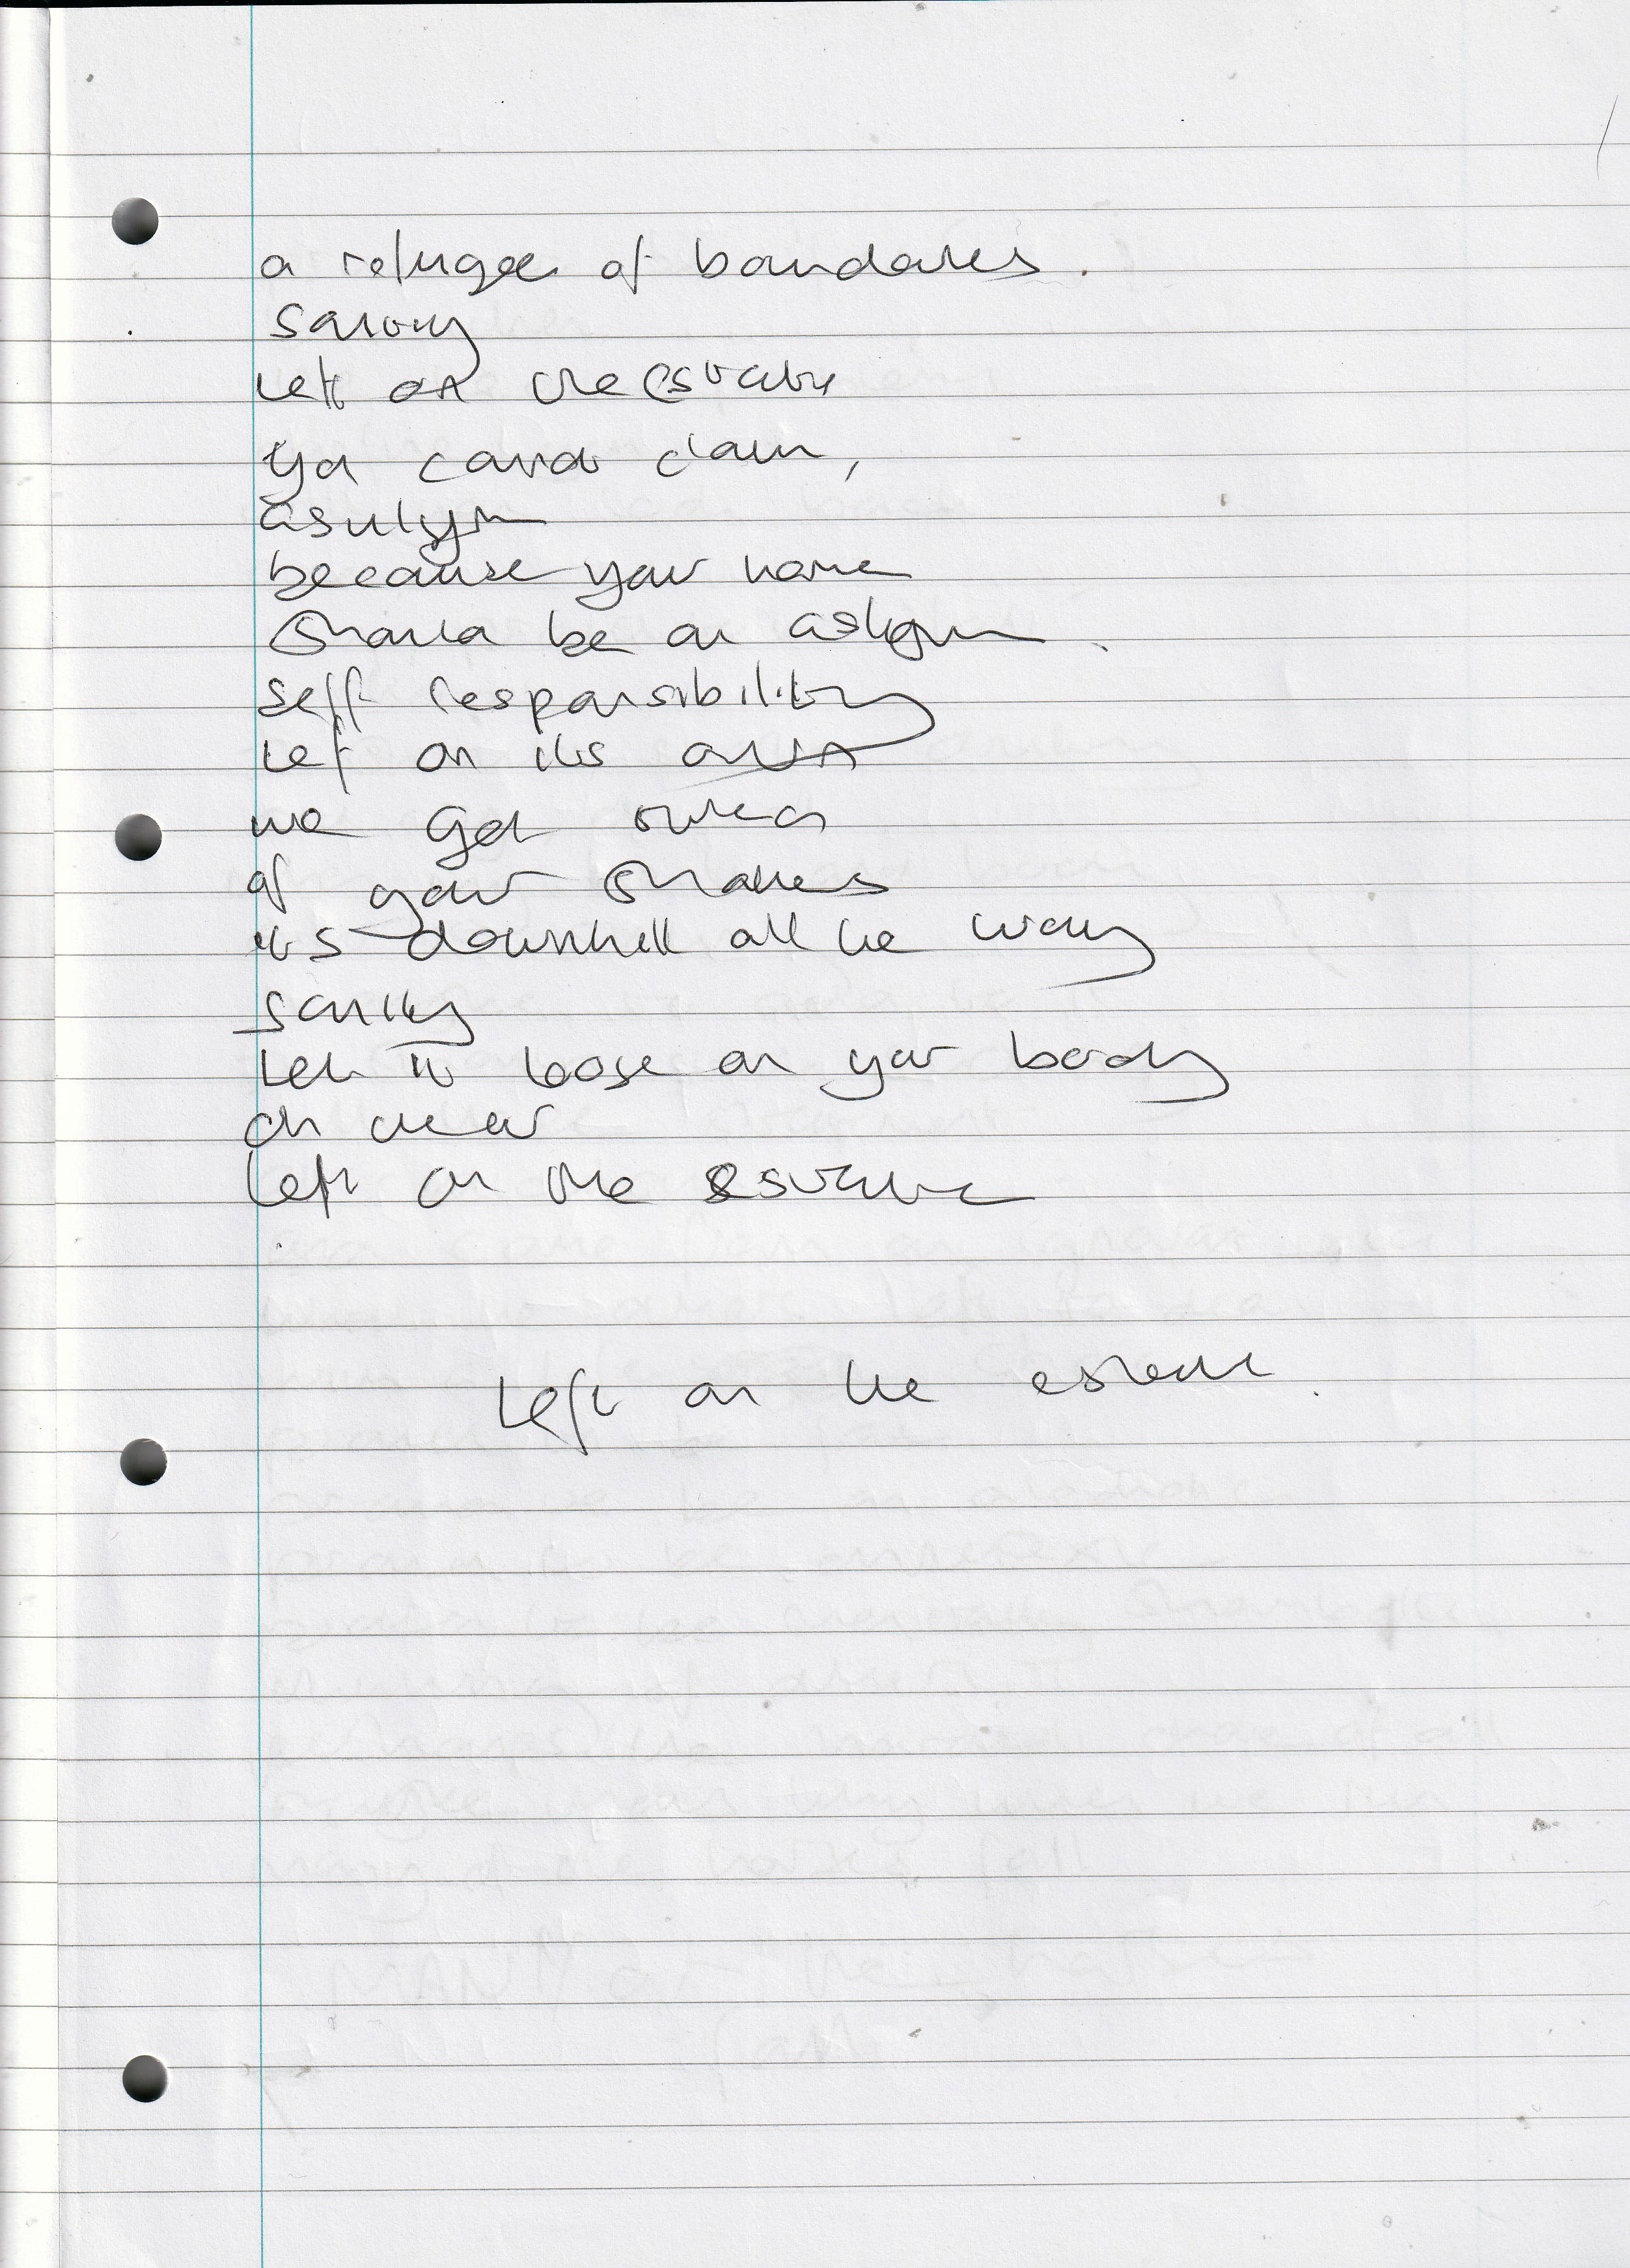 a refugee of boundaries.
left on the estate
You cannot claim,
asulym
because your home
should be an aslym.
self responsibility
left on its own
we got
of your
its downhill all the way
sanity
let it loose on your body
oh dear
left on the estate
left on the estate.